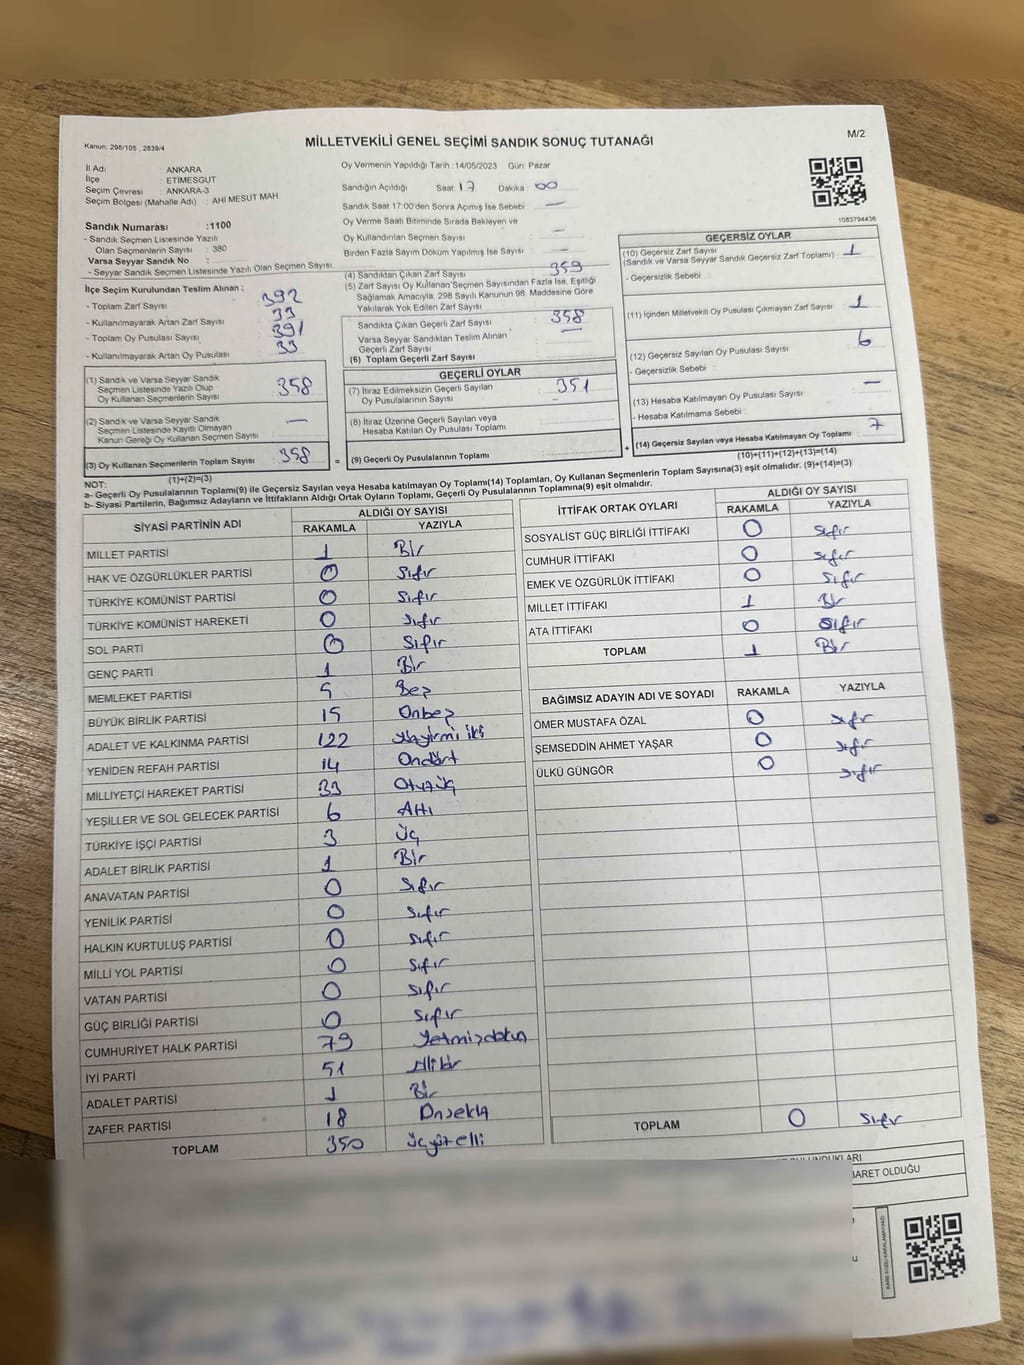 Kanun: 298/105 , 2839/4
MİLLETVEKİLİ GENEL SEÇİMİ SANDIK SONUÇ TUTANAĞI
M/2
İl Adı : ANKARA
İlçe : ETİMESGUT
Seçim Çevresi : ANKARA-3
Seçim Bölgesi (Mahalle Adı) : AHİ MESUT MAH.
Oy Vermenin Yapıldığı Tarih :14/05/2023 Gün: Pazar
Sandığın Açıldığı Saat 17 Dakika : 00
Sandık Saat 17:00'den Sonra Açımış İse Sebebi : —
Oy Verme Saati Bitiminde Sırada Bekleyen ve
Oy Kullandırılan Seçmen Sayısı : —
Birden Fazla Sayım Döküm Yapılmış İse Sayısı : —
1083794436
Sandık Numarası :1100
- Sandık Seçmen Listesinde Yazılı
Olan Seçmenlerin Sayısı : 380
Varsa Seyyar Sandık No :
- Seyyar Sandık Seçmen Listesinde Yazılı Olan Seçmen Sayısı:
İlçe Seçim Kurulundan Teslim Alınan ;
- Toplam Zarf Sayısı : 392
- Kullanılmayarak Artan Zarf Sayısı : 33
- Toplam Oy Pusulası Sayısı : 391
- Kullanılmayarak Artan Oy Pusulası : 33
(1) Sandık ve Varsa Seyyar Sandık
Seçmen Listesinde Yazılı Olup
Oy Kullanan Seçmenlerin Sayısı : 358
(2) Sandık ve Varsa Seyyar Sandık
Seçmen Listesinde Kayıtlı Olmayan
Kanun Gereği Oy Kullanan Seçmen Sayısı : —
(3) Oy Kullanan Seçmenlerin Toplam Sayısı : 358
(1)+(2)=(3)
(4) Sandıktan Çıkan Zarf Sayısı : 359
(5) Zarf Sayısı Oy Kullanan Seçmen Sayısından Fazla İse, Eşitliği
Sağlamak Amacıyla, 298 Sayılı Kanunun 98. Maddesine Göre
Yakılarak Yok Edilen Zarf Sayısı :
Sandıkta Çıkan Geçerli Zarf Sayısı : 358
Varsa Seyyar Sandıktan Teslim Alınan
Geçerli Zarf Sayısı : —
(6) Toplam Geçerli Zarf Sayısı :
GEÇERLİ OYLAR
(7) İtiraz Edilmeksizin Geçerli Sayılan
Oy Pusulalarının Sayısı : 351
(8) İtiraz Üzerine Geçerli Sayılan veya
Hesaba Katılan Oy Pusulası Toplamı : —
= (9) Geçerli Oy Pusulalarının Toplamı :
GEÇERSİZ OYLAR
(10) Geçersiz Zarf Sayısı
(Sandık ve Varsa Seyyar Sandık Geçersiz Zarf Toplamı) : 1
- Geçersizlik Sebebi :
(11) İçinden Milletvekili Oy Pusulası Çıkmayan Zarf Sayısı : 1
(12) Geçersiz Sayılan Oy Pusulası Sayısı : 6
- Geçersizlik Sebebi :
(13) Hesaba Katılmayan Oy Pusulası Sayısı : —
- Hesaba Katılmama Sebebi :
+ (14) Geçersiz Sayılan veya Hesaba Katılmayan Oy Toplamı : 7
(10)+(11)+(12)+(13)=(14)
NOT:
a- Geçerli Oy Pusulalarının Toplamı(9) ile Geçersiz veya Hesaba katılmayan Oy Toplamı(14) Toplamları, Oy Kullanan Seçmenlerin Toplam Sayısına(3) eşit olmalıdır. (9)+(14)=(3)
b- Siyasi Partilerin, Bağımsız Adayların ve İttifakların Aldığı Ortak Oyların Toplamı, Geçerli Oy Pusulalarının Toplamına(9) eşit olmalıdır.
SİYASİ PARTİNİN ADI ALDIĞI OY SAYISI
RAKAMLA YAZIYLA
MİLLET PARTİSİ 1 Bir
HAK VE ÖZGÜRLÜKLER PARTİSİ 0 Sıfır
TÜRKİYE KOMÜNİST PARTİSİ 0 Sıfır
TÜRKİYE KOMÜNİST HAREKETİ 0 Sıfır
SOL PARTİ 0 Sıfır
GENÇ PARTİ 1 Bir
MEMLEKET PARTİSİ 5 Beş
BÜYÜK BİRLİK PARTİSİ 15 Onbeş
ADALET VE KALKINMA PARTİSİ 122 Yüzyirmi iki
YENİDEN REFAH PARTİSİ 14 Ondört
MİLLİYETÇİ HAREKET PARTİSİ 33 Otuzüç
YEŞİLLER VE SOL GELECEK PARTİSİ 6 Altı
TÜRKİYE İŞÇİ PARTİSİ 3 Üç
ADALET BİRLİK PARTİSİ 1 Bir
ANAVATAN PARTİSİ 0 Sıfır
YENİLİK PARTİSİ 0 Sıfır
HALKIN KURTULUŞ PARTİSİ 0 Sıfır
MİLLİ YOL PARTİSİ 0 Sıfır
VATAN PARTİSİ 0 Sıfır
GÜÇ BİRLİĞİ PARTİSİ 0 Sıfır
CUMHURİYET HALK PARTİSİ 79 Yetmişdokuz
İYİ PARTİ 51 Ellibir
ADALET PARTİSİ 1 Bir
ZAFER PARTİSİ 18 Onsekiz
TOPLAM 350 Üçyüzelli
İTTİFAK ORTAK OYLARI ALDIĞI OY SAYISI
RAKAMLA YAZIYLA
SOSYALİST GÜÇ BİRLİĞİ İTTİFAKI 0 Sıfır
CUMHUR İTTİFAKI 0 Sıfır
EMEK VE ÖZGÜRLÜK İTTİFAKI 0 Sıfır
MİLLET İTTİFAKI 1 Bir
ATA İTTİFAKI 0 Sıfır
TOPLAM 1 Bir
BAĞIMSIZ ADAYIN ADI VE SOYADI RAKAMLA YAZIYLA
ÖMER MUSTAFA ÖZAL 0 Sıfır
ŞEMSEDDİN AHMET YAŞAR 0 Sıfır
ÜLKÜ GÜNGÖR 0 Sıfır
TOPLAM 0 Sıfır
BARET OLDUĞU